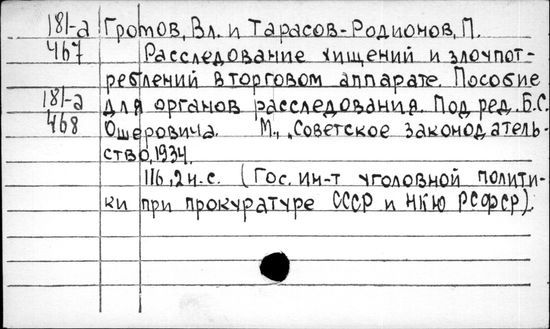 181-а Громов, Вл. и Тарасов-Родионов, П.
467 Расследование хищений и злоупот-
реблений в торговом аппарате. Пособие
181-а для органов расследования. Под ред. Б.С.
468 Ошеровича. М., "Советское законодатель-
ство, 1934.
116, 2 н. с. (Гос. ин-т уголовной полити-
ки при прокуратуре СССР и НКЮ РСФСР).